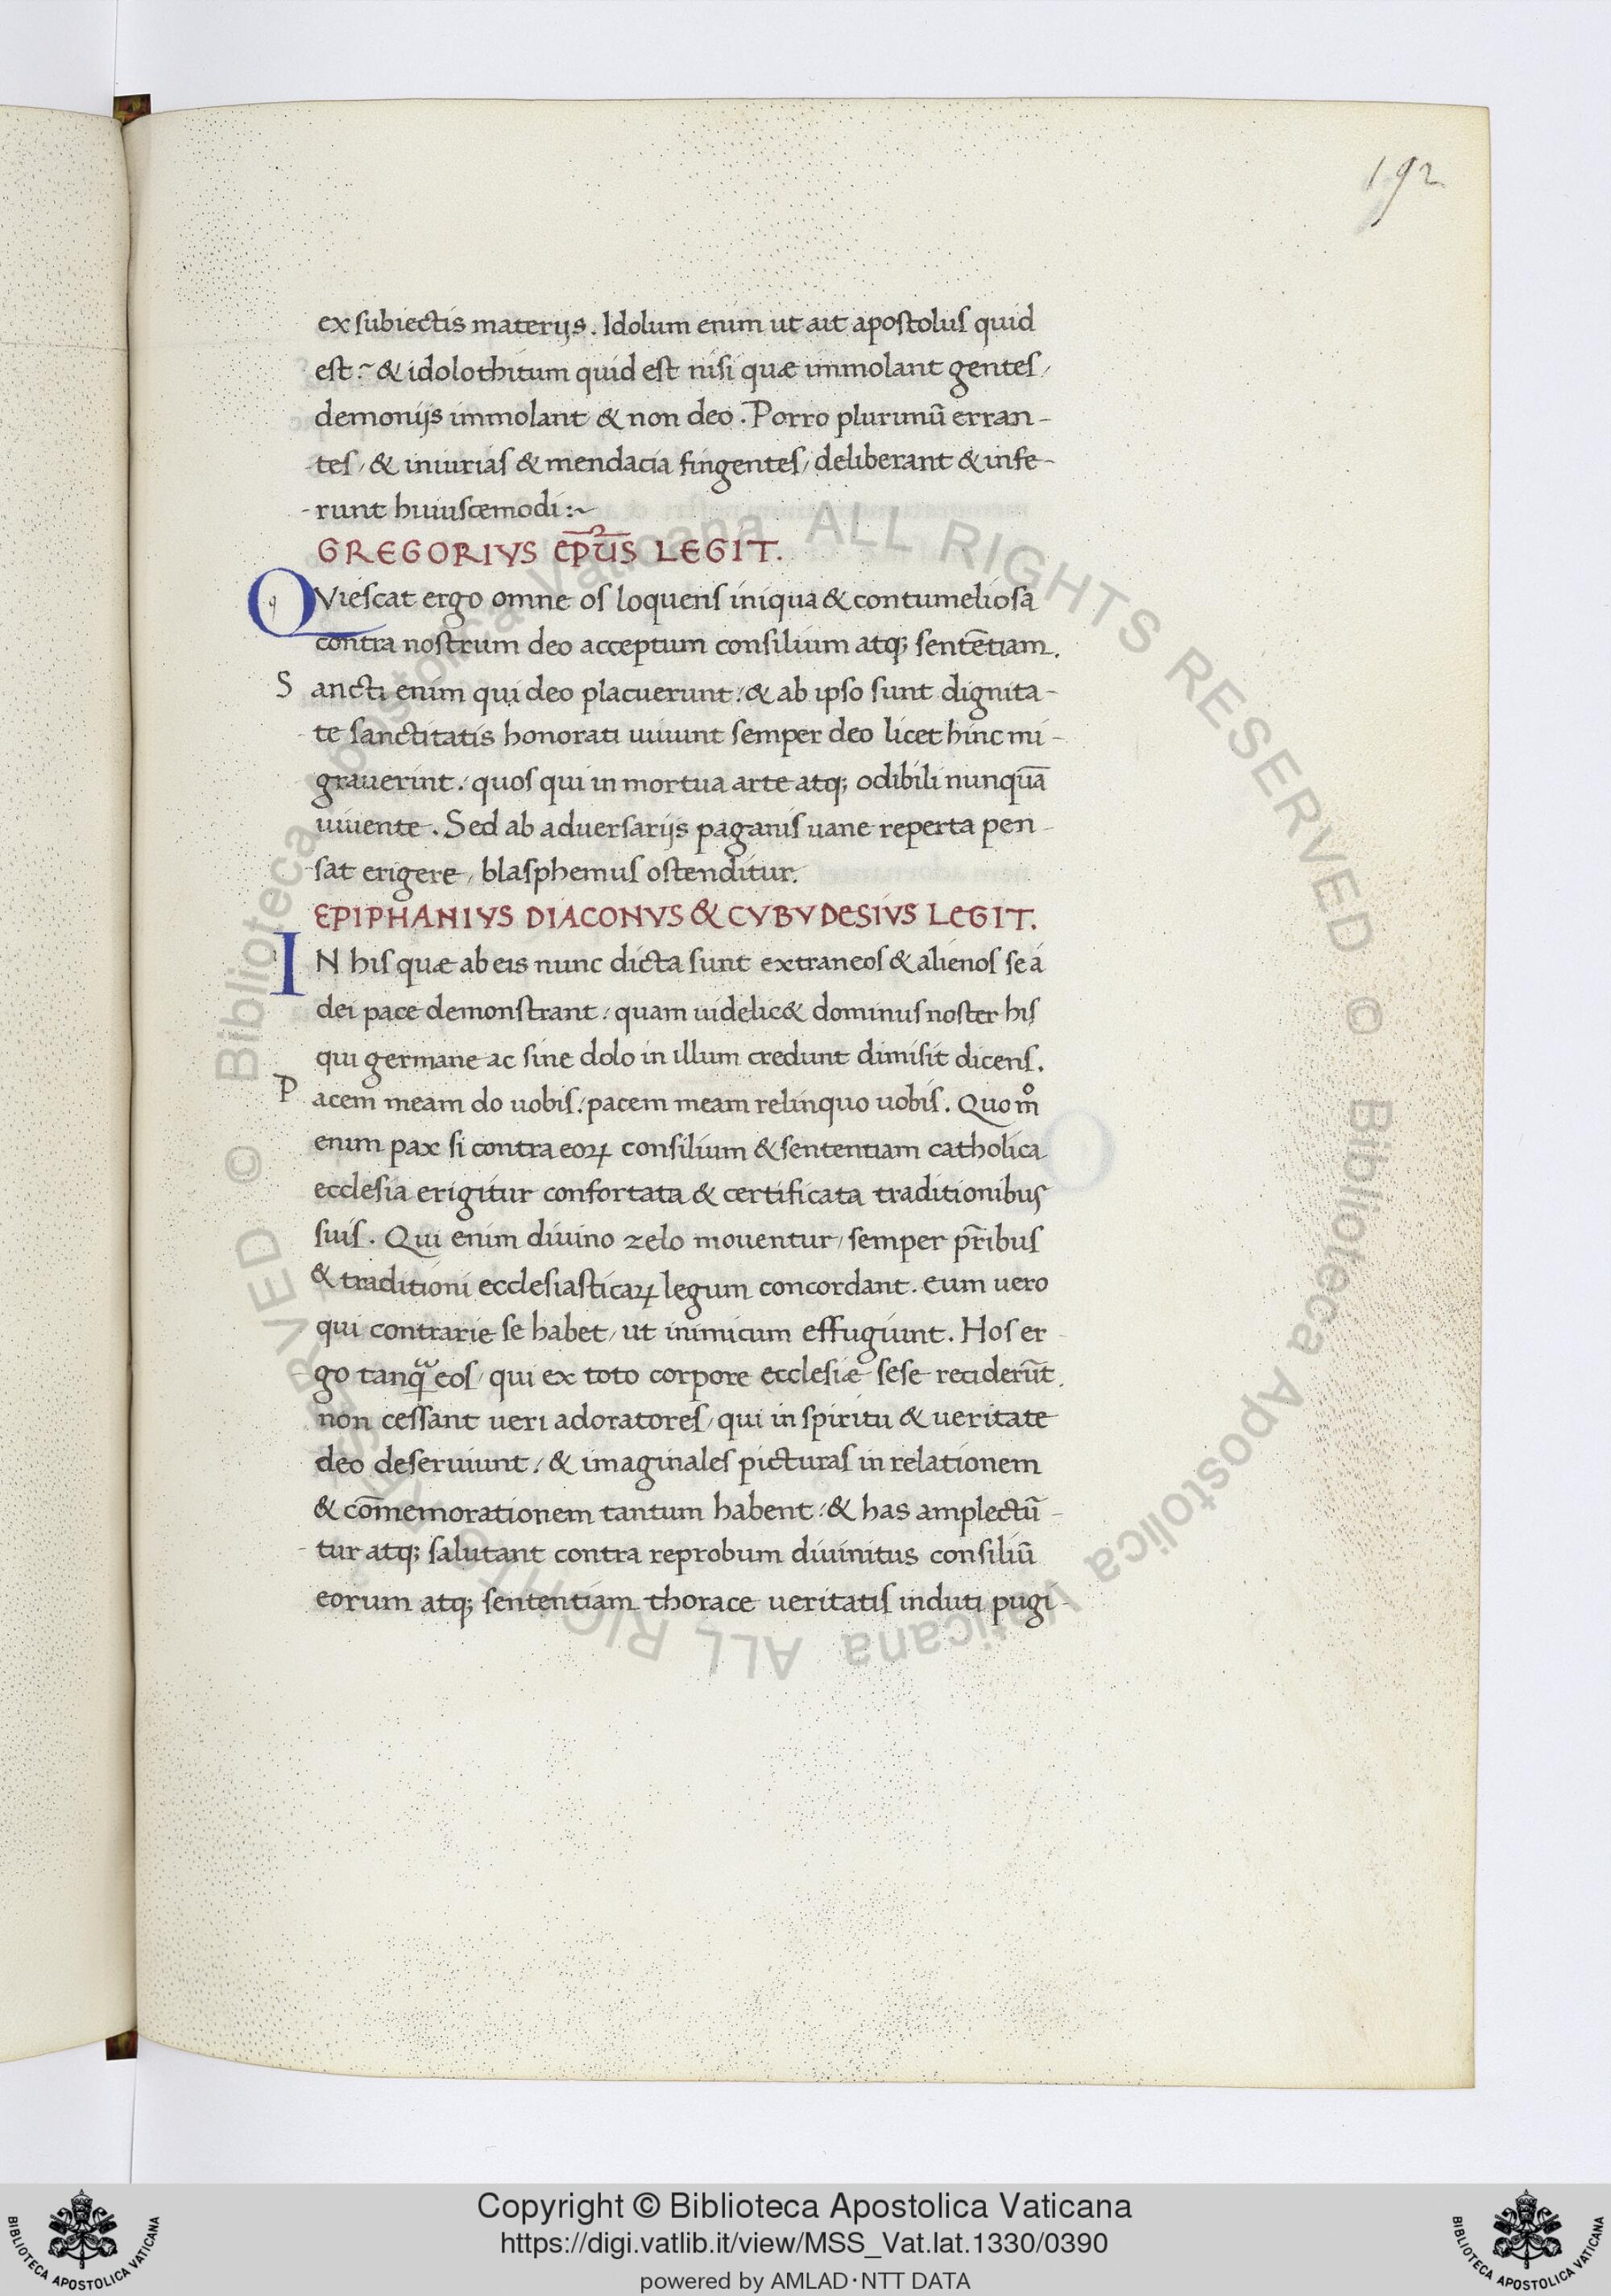 192
ex subiectis materijs. Idolum enim ut ait apostolus quid
est:~ & idolothitum quid est nisi quæ immolant gentes,
demonijs immolant & non deo. Porro plurimũ erran-
-tes, & iniurias & mendacia fingentes, deliberant & infe-
-runt huiuscemodi:~
GREGORIVS EPŪS LEGIT.
QViescat ergo omne os loquens iniqua & contumeliosa
contra nostrum deo acceptum consilium atq; sentētiam.
Sancti enim qui deo placuerunt: & ab ipso sunt dignita-
-te sanctitatis honorati uiuunt semper deo licet hinc mi-
grauerint: quos qui in mortua arte atq; odibili nunquā
uiuente. Sed ab aduersarijs paganis uane reperta pen-
-sat erigere, blasphemus ostenditur.
EPIPHANIVS DIACONVS & CVBVDESIVS LEGIT.
IN his quæ ab eis nunc dicta sunt extraneos & alienos se á
dei pace demonstrant: quam uidelic& dominus noster his
qui germane ac sine dolo in illum credunt dimisit dicens.
Pacem meam do uobis: pacem meam relinquo uobis. Quom̊
enim pax si contra eoꝝ consilium & sententiam catholica
ecclesia erigitur confortata & certificata traditionibus
suis. Qui enim diuino zelo mouentur, semper pr̄ibus
& traditioni ecclesiasticaꝝ legum concordant. eum uero
qui contrarie se habet, ut inimicum effugiunt. Hos er-
go tanqͣ eos, qui ex toto corpore ecclesiæ sese reciderūt.
non cessant ueri adoratores, qui in spiritu & ueritate
deo deseruiunt: & imaginales picturas in relationem
& cōmemorationem tantum habent: & has amplectũ-
-tur atq; salutant contra reprobum diuinitus consiliũ
eorum atq; sententiam thorace ueritatis induti pugi-
© Biblioteca Apostolica Vaticana ALL RIGHTS RESERVED © Biblioteca Apostolica Vaticana ALL RIGHTS RESERVED
Copyright © Biblioteca Apostolica Vaticana
https://digi.vatlib.it/view/MSS_Vat.lat.1330/0390
powered by AMLAD·NTT DATA
BIBLIOTECA APOSTOLICA VATICANA
BIBLIOTECA APOSTOLICA VATICANA